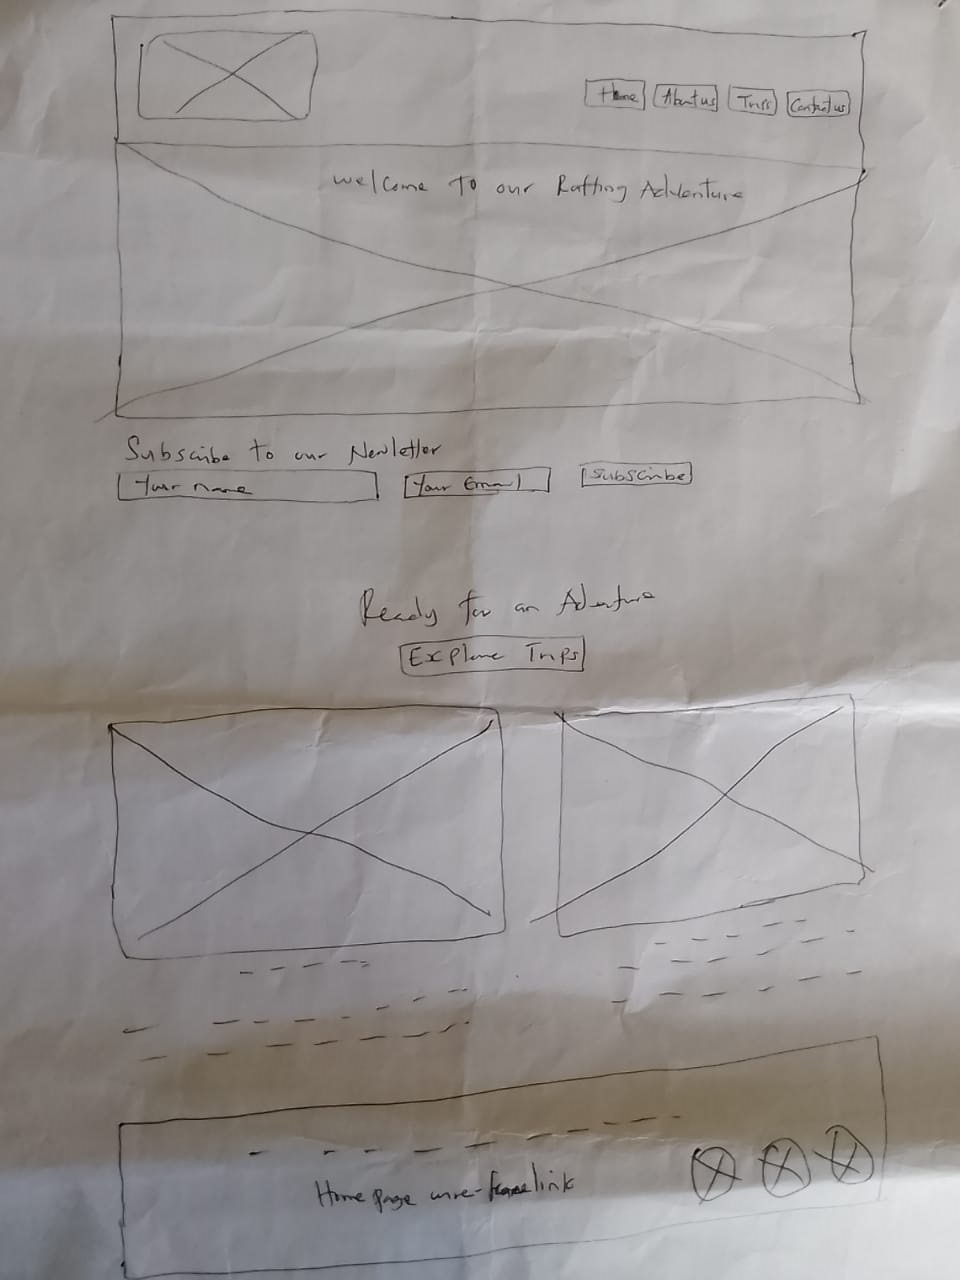 Home About us Trips Contact us
Welcome To our Rafting Adventure
Subscribe to our Newletter
Your name Your Email Subscribe
Ready for an Adenture
Explore Trips
Home page wire-frame link